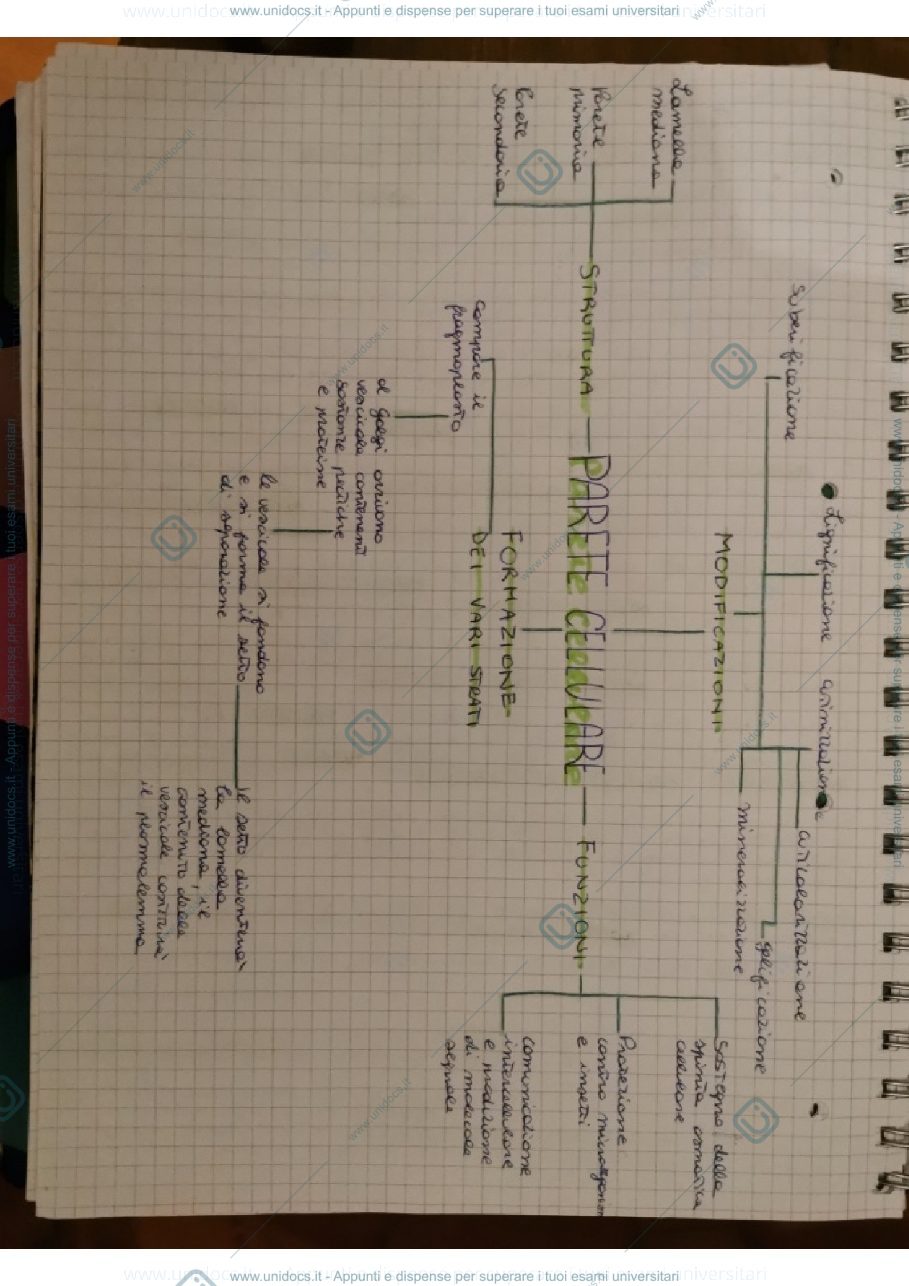 www.unidocs.it - Appunti e dispense per superare i tuoi esami universitari
Suberificazione
Lignificazione
cutinizzazione
cuticolarizzazione
gelificazione
mineralizzazione
MODIFICAZIONI
Lamella
mediana
Parete
primaria
Parete
secondaria
STRUTTURA
PARETE CELLULARE
FUNZIONI
Sostegno della
spinta osmotica
cellulare
Protezione
contro microrganismi
e insetti
comunicazione
intercellulare
e produzione
di molecole
segnale
FORMAZIONE
DEI VARI STRATI
compare il
fragmoplasto
al golgi arrivano
vescicole contenenti
sostanze pectiche
e proteine
le vescicole si fondono
e si forma il setto
di separazione
il setto diventera'
la lamella
mediana, il
contenuto delle
vescicole costituira'
il plasmalemma
www.unidocs.it - Appunti e dispense per superare i tuoi esami universitari